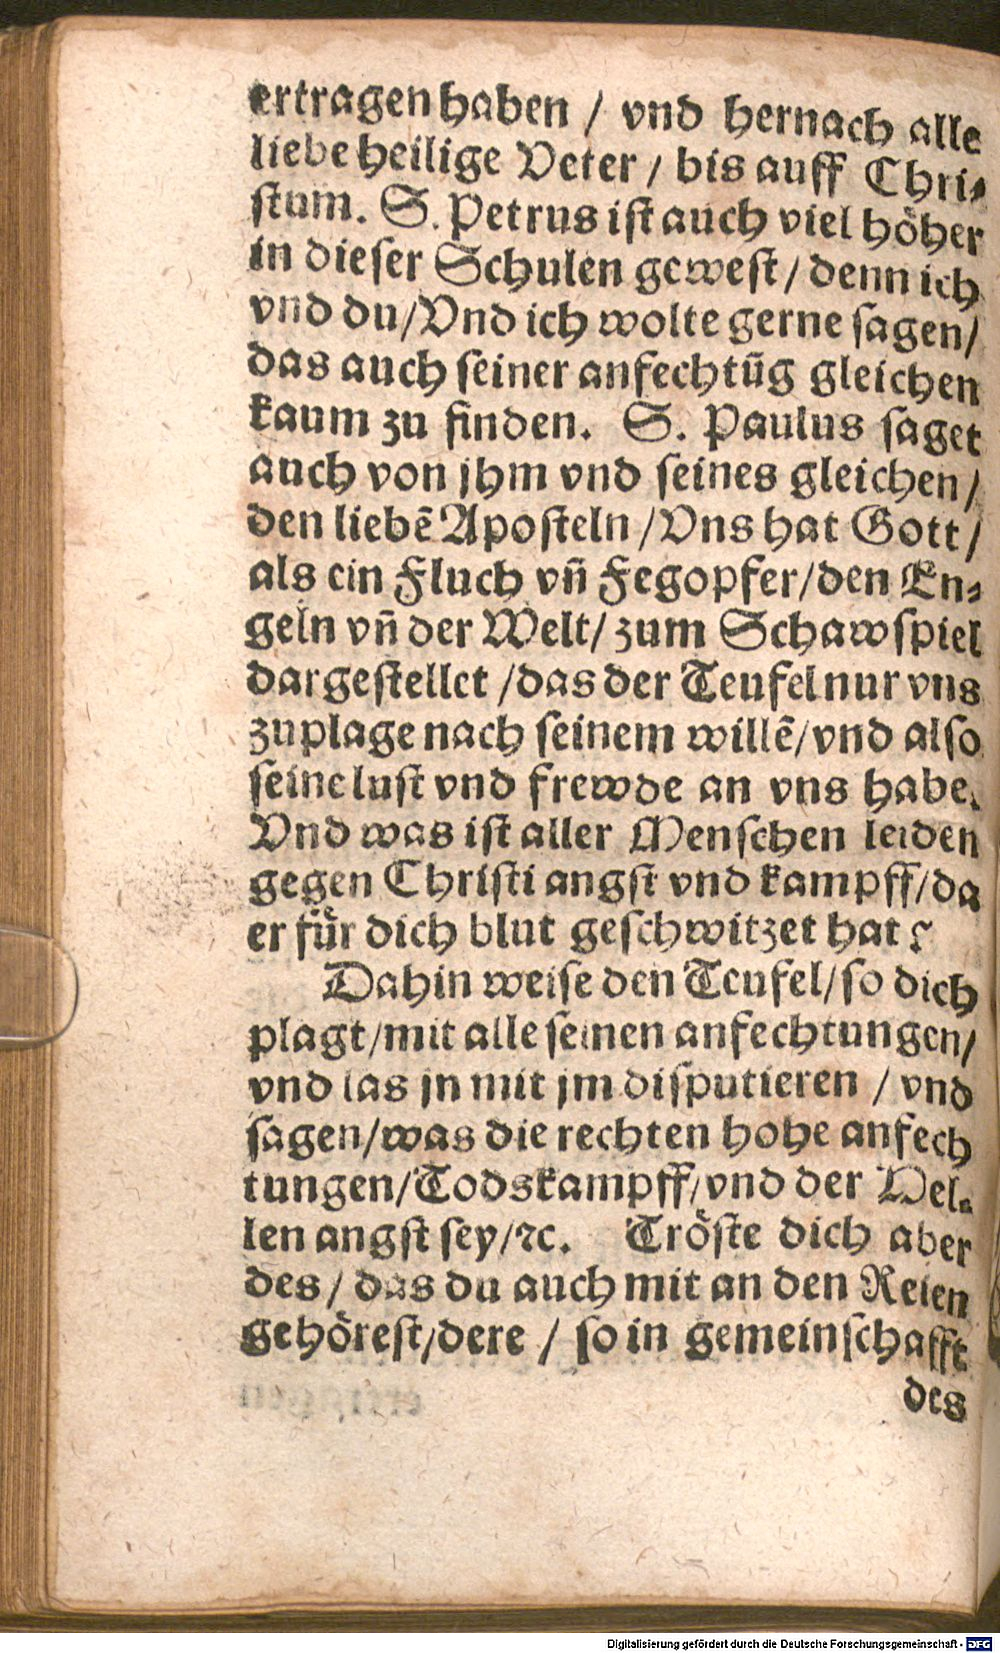 ertragen haben / vnd hernach alle
liebe heilige Veter / bis auff Chri⸗
stum. S. Petrus ist auch viel höher
in dieser Schulen gewest / denn ich
vnd du / Vnd ich wolte gerne sagen /
das auch seiner anfechtūg gleichen
kaum zu finden. S. Paulus saget
auch von jhm vnd seines gleichen /
den liebē Aposteln / Vns hat Gott /
als ein Fluch vn̄ Fegopfer / den En⸗
geln vn̄ der Welt / zum Schawspiel
dargestellet / das der Teufel nur vns
zuplage nach seinem willē / vnd also
seine lust vnd frewde an vns habe.
Vnd was ist aller Menschen leiden
gegen Christi angst vnd kampff / da
er für dich blut geschwitzet hat?
Dahin weise den Teufel / so dich
plagt / mit alle seinen anfechtungen /
vnd las jn mit jm disputieren / vnd
sagen / was die rechten hohe anfech
tungen / Todskampff / vnd der Hel⸗
len angst sey / ꝛc. Tröste dich aber
des / das du auch mit an den Reien
gehörest / dere / so in gemeinschafft
des
Digitalisierung gefördert durch die Deutsche Forschungsgemeinschaft - DFG